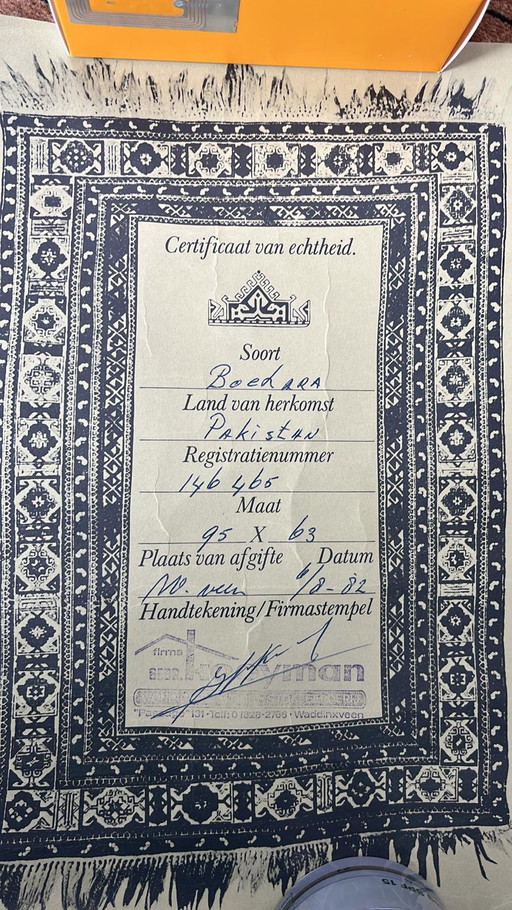 Certificaat van echtheid.
Soort
Boedara
Land van herkomst
Pakistan
Registratienummer
146 465
Maat
95 X 63
Plaats van afgifte Datum
W. veen /8-82
Handtekening/Firmastempel
firma
GEBR. Kooyman
131 · Telf: 01828-2765 · Waddinxveen